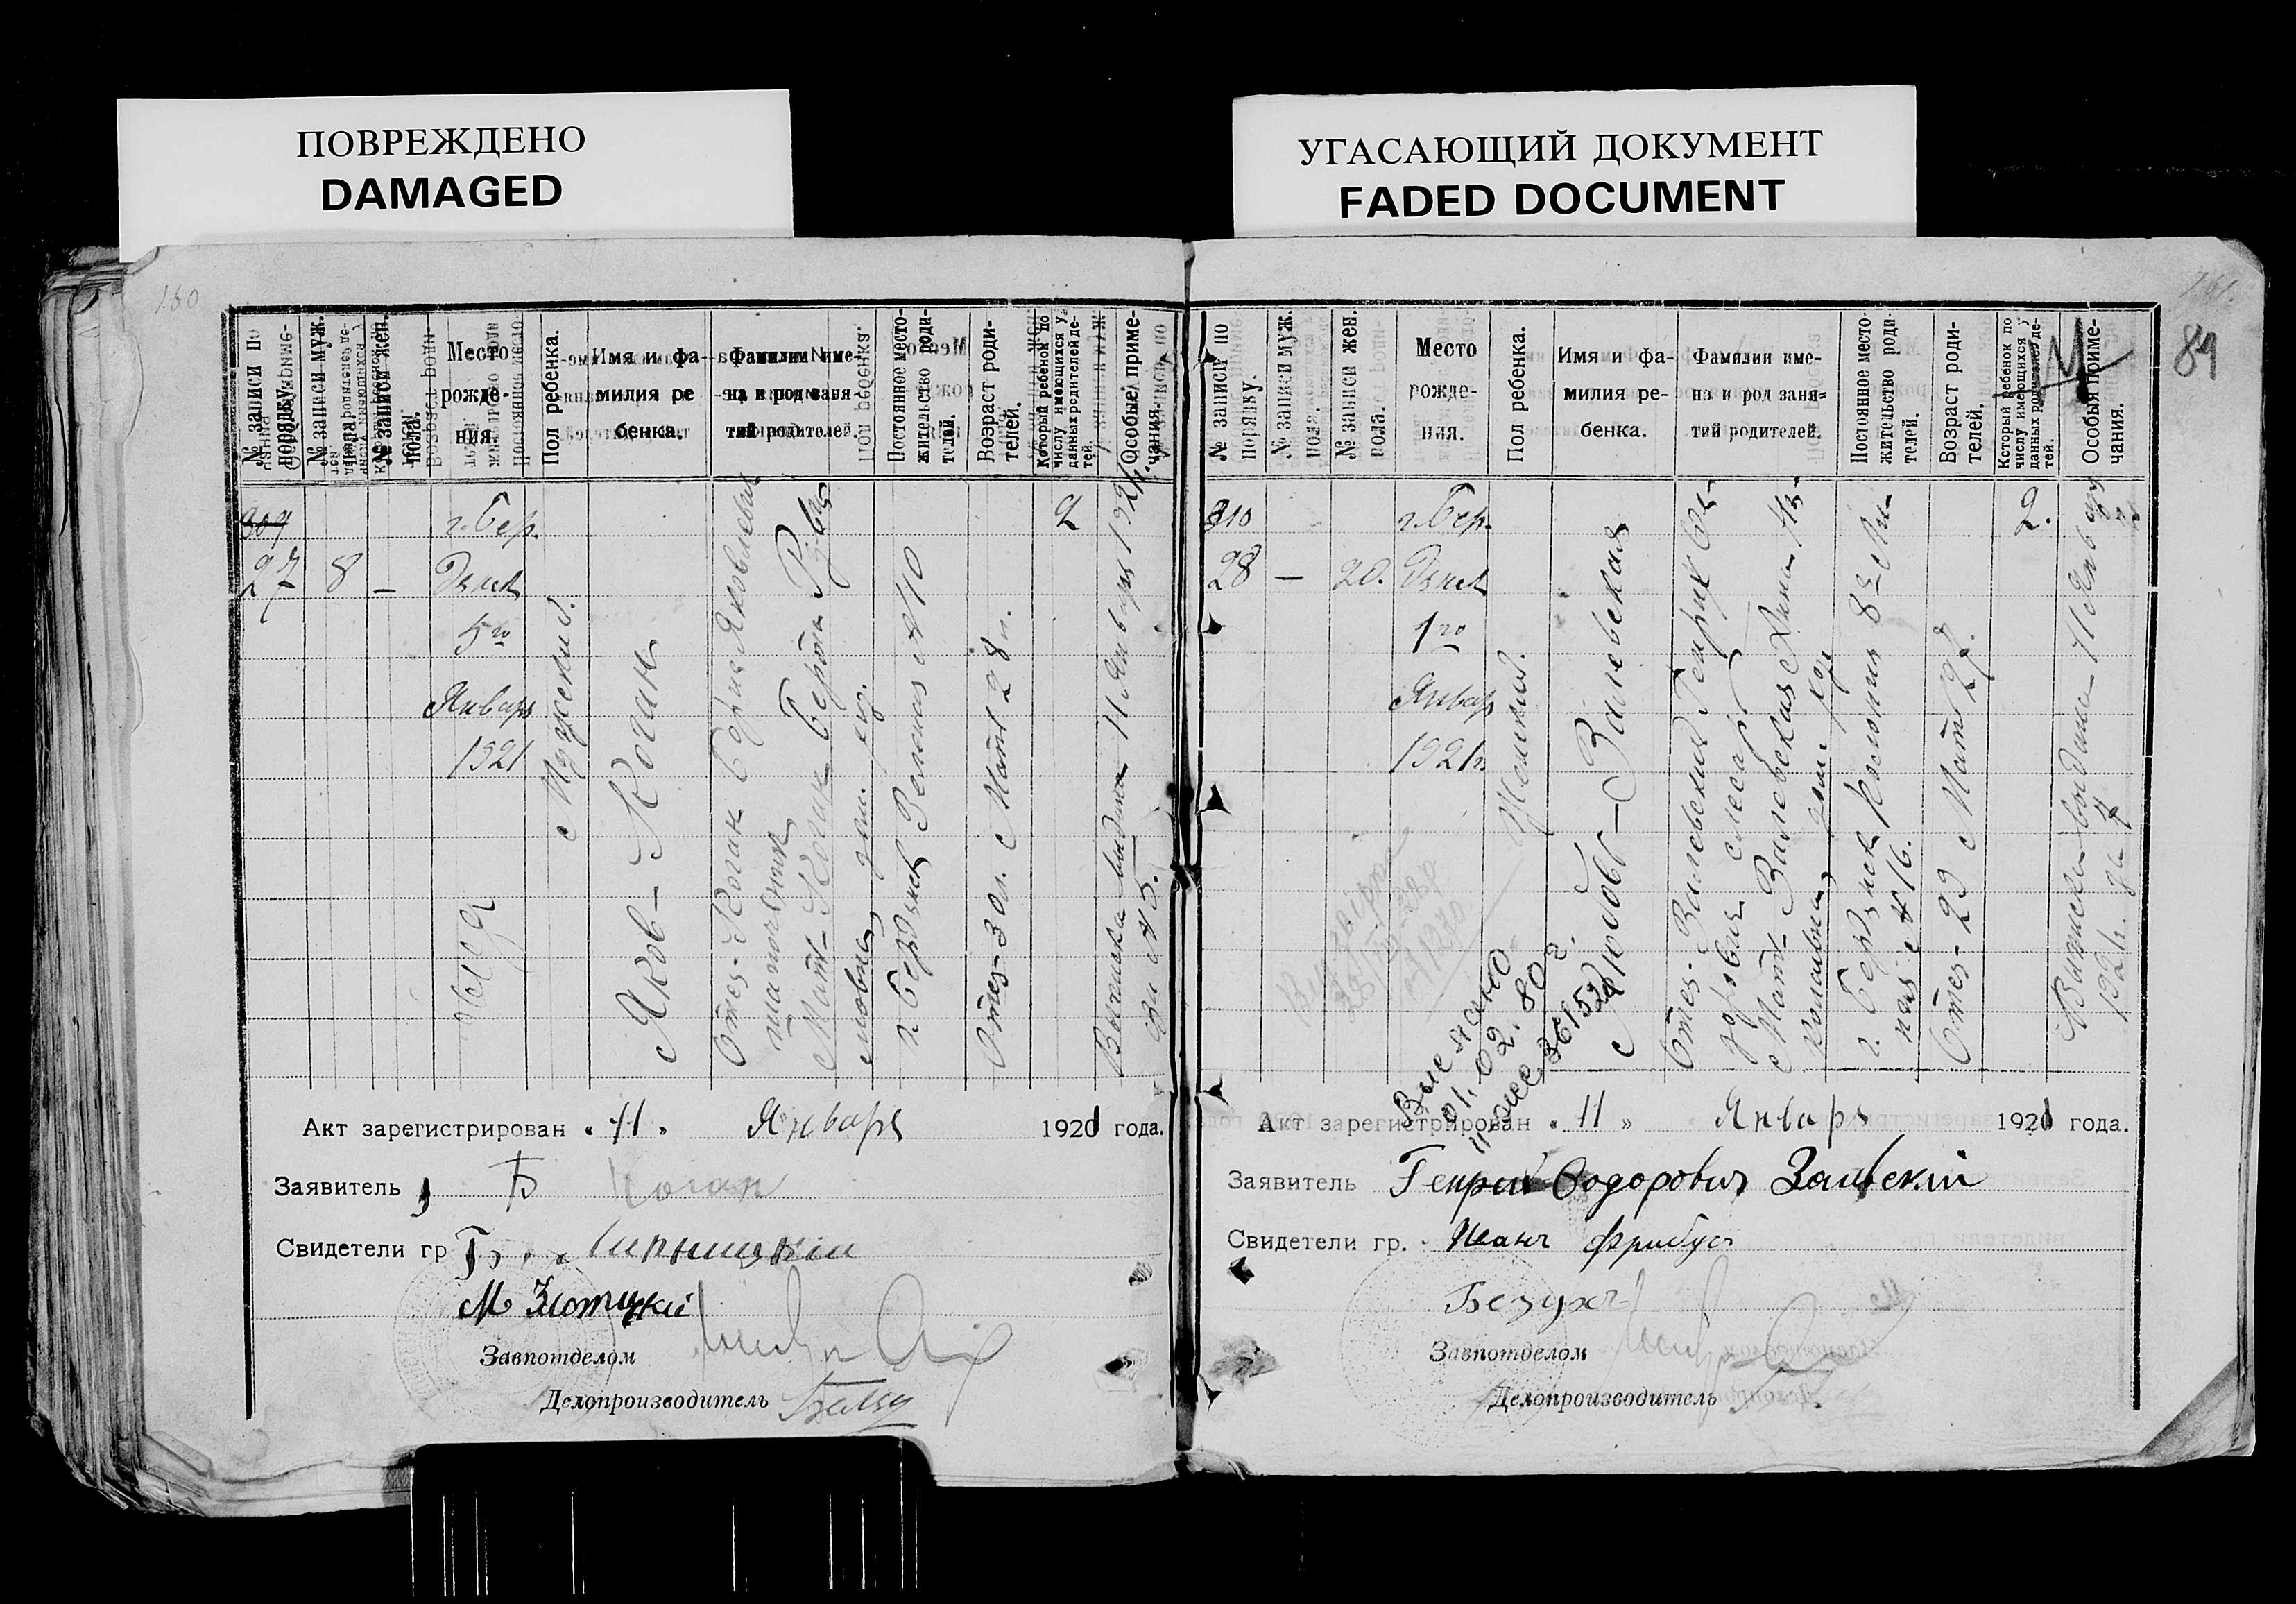 ПОВРЕЖДЕНО
DAMAGED
УГАСАЮЩИЙ ДОКУМЕНТ
FADED DOCUMENT
150
№ записи по порядку.
№ записи муж. пола.
№ записи жен. пола.
Место рожде-
ния.
Пол ребенка.
Имя и фа-
милия ре
бенка.
Фамилии име-
на и род заня-
тий родителей.
Постоянное место-
жительство роди-
телей.
Возраст роди-
телей.
Который ребенок по
числу имеющихся у
данных родителей де-
тей.
Особые приме-
чания.
309
27
8
—
г. Бер-
дянск
5го
Январь
1921
Мужский.
Яков – Коган
Отец – Коган Борис Яковлевич
Мать – Коган Берта Руви
мовна дом. хоз.
г. Бердянск
№ 10
Отец – 30 л. Мать 28 л.
2
Выписка выдана 11 Января 1921 г.
за № 5.
Акт зарегистрирован „ 11 „ Января 1921 года.
Заявитель Б Коган
Свидетели гр
М Злотицкій
Завпотделом
Делопроизводитель
89
№ записи по
порядку.
№ записи муж.
пола.
№ записи жен.
пола.
Место
рожде-
ния.
Пол ребенка.
Имя и фа-
милия ре-
бенка.
Фамилии име-
на и род заня-
тий родителей.
Постоянное место-
жительство роди-
телей.
Возраст роди-
телей.
Который ребенок по
числу имеющихся у
данных родителей де-
тей.
Особыя приме-
чания.
М
310
28
—
20.
г. Бер-
дянск
1го
Январь
1921 г.
Женский.
Любовь – Залевская
Отец – Залевский Генрих Фео-
дорович слесарь
Мать – Залевская Анна Ни-
колаевна дом хоз
г. Бердянск Колония 8я Ли-
ния № 16.
Отец – 29 Мать 27.
2.
Выписка выдана 11 Янв
1921 г. за № 7
Выслано
01.02.80 г.
Акт зарегистрирован „ 11 „ Январь 1921 года.
Заявитель Генрих Фодорович Залевскій
Свидетели гр. Иван Фрибус
Безух
Завпотделом
Делопроизводитель